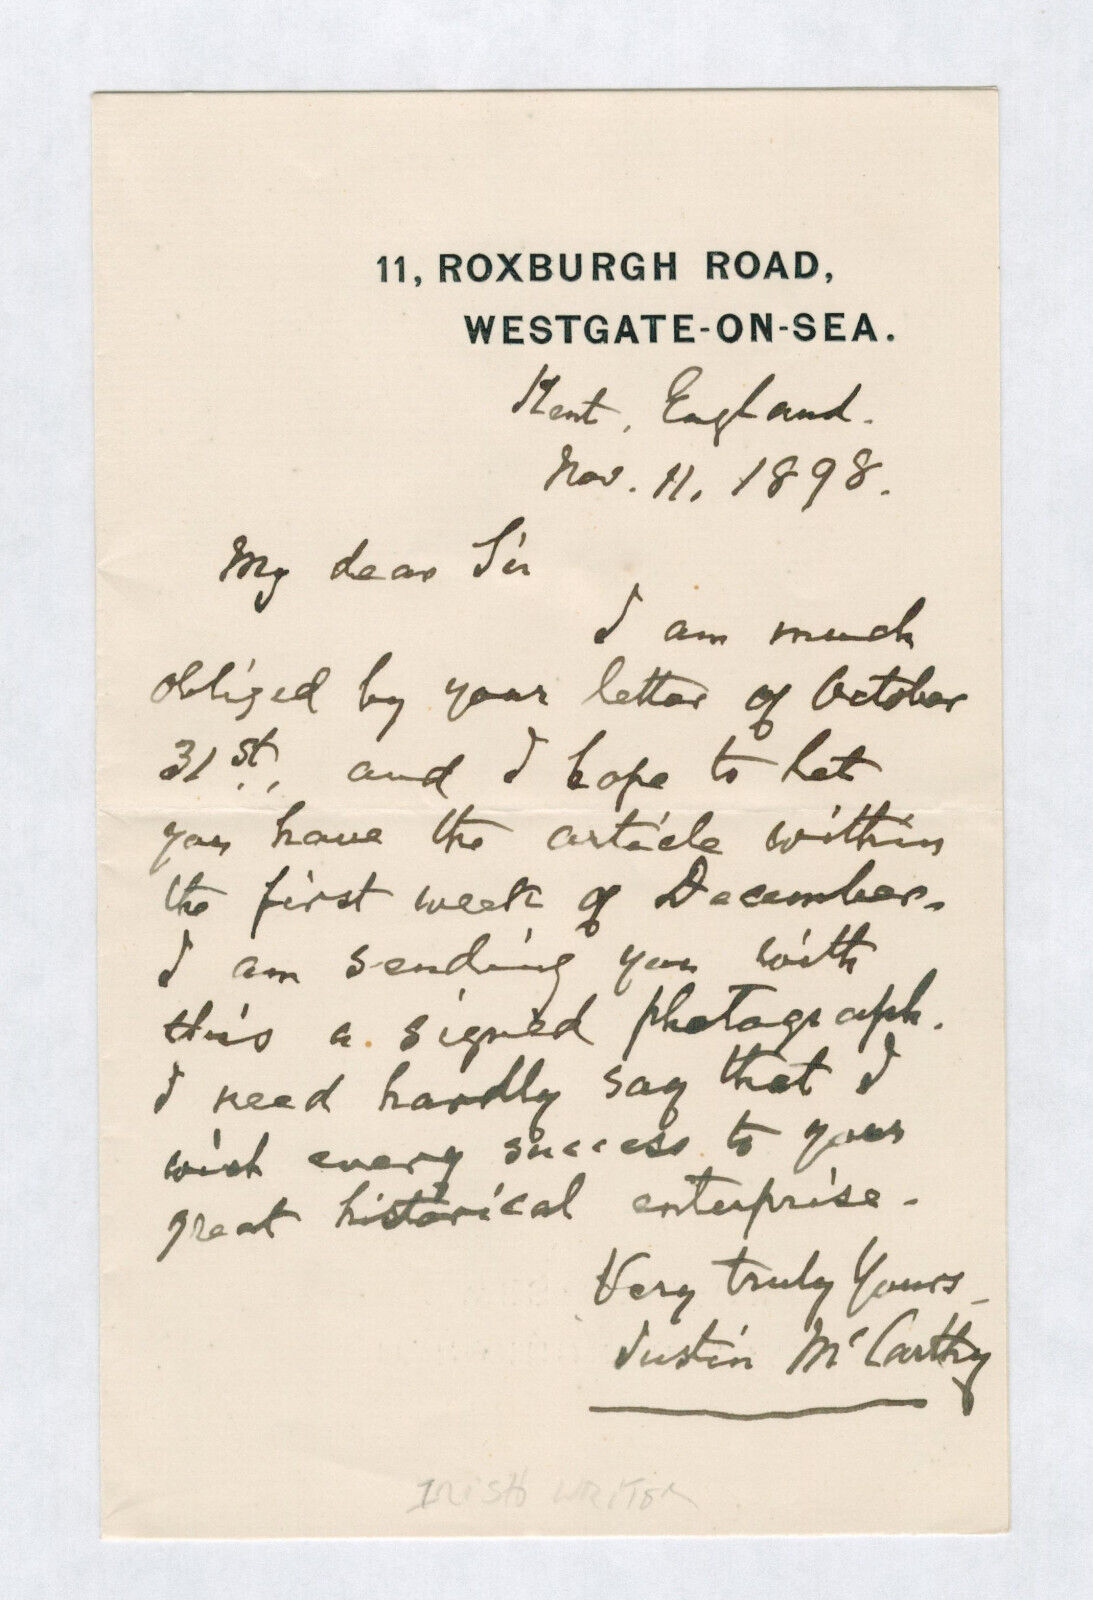 11, ROXBURGH ROAD,
WESTGATE-ON-SEA.
Kent, England.
Nov. 11, 1898.
My dear Sir
I am much
obliged by your letter of October
31st, and I hope to let
you have the article within
the first week of December.
I am sending you with
this a signed photograph.
I need hardly say that I
wish every success to your
great historical enterprise.
Very truly Yours
Justin McCarthy
IRISH WRITER